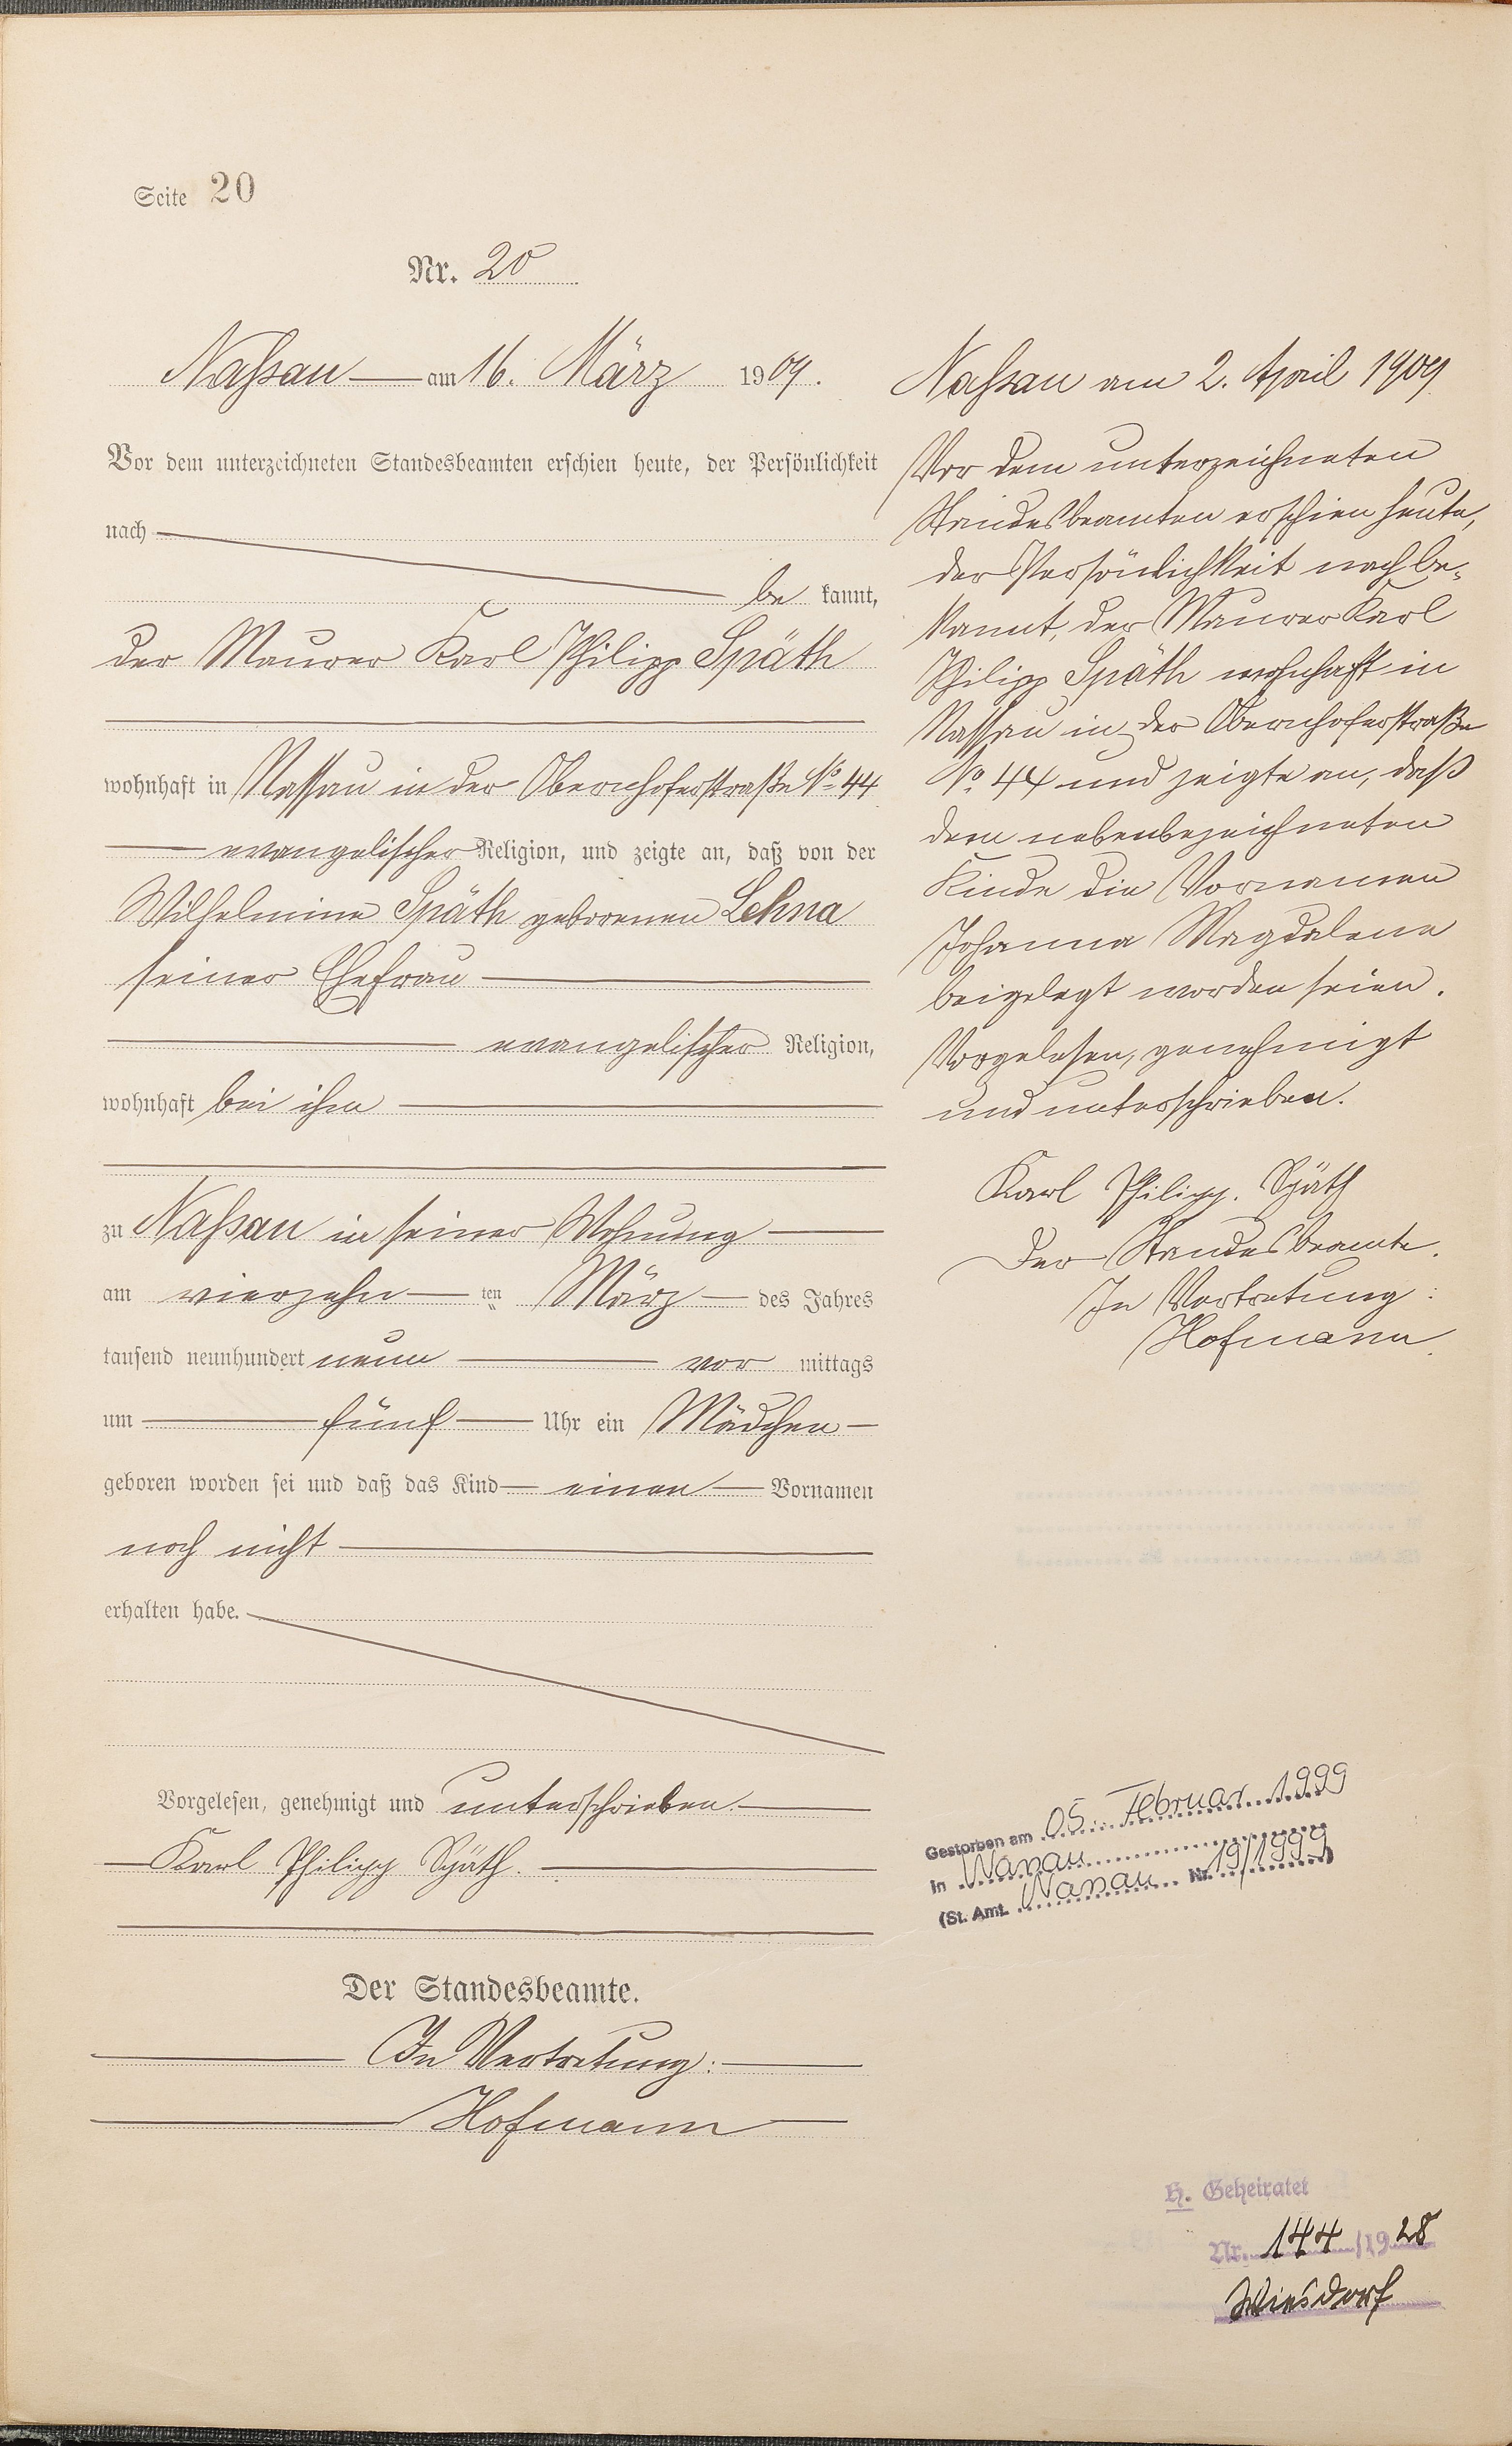 Seite 20
Nr. 20
Naßsau — am 16. März 1909.
Vor dem unterzeichneten Standesbeamten erschien heute, der Persönlichkeit
nach
be kannt,
der Maurer Karl Philipp Späth
wohnhaft in Nassau in der Obernhoferstraße No 44
evangelischer Religion, und zeigte an, daß von der
Wilhelmine Späth geborenen Lehna
seiner Ehefrau
evangelischer Religion,
wohnhaft bei ihm
zu Naßsau in seiner Wohnung
am vierzehn ten März des Jahres
tausend neunhundert neun vor mittags
um fünf Uhr ein Mädchen
geboren worden sei und daß das Kind einen Vornamen
noch nicht
erhalten habe.
Vorgelesen, genehmigt und unterschrieben.
Karl Philipp Späth.
Der Standesbeamte.
In Vertretung:
Hofmann
Naßsau am 2. April 1909.
Vor dem unterzeichneten
Standesbeamten erschien heute,
der Persönlichkeit nach be-
kannt, der Maurer Karl
Philipp Späth wohnhaft in
Nassau in der Obernhoferstraße
No. 44 und zeigte an, daß
dem nebenbezeichneten
Kinde die Vornamen
Johanna Magdalene
beigelegt worden seien.
Vorgelesen, genehmigt
und unterschrieben.
Karl Philipp. Späth
Der Standesbeamte.
In Vertretung:
Hofmann.
Gestorben am 05. Februar 1999
in Nassau
(St. Amt. Nassau Nr. 19/1999)
H. Geheiratet
Nr. 144 /1928
Wiesdorf